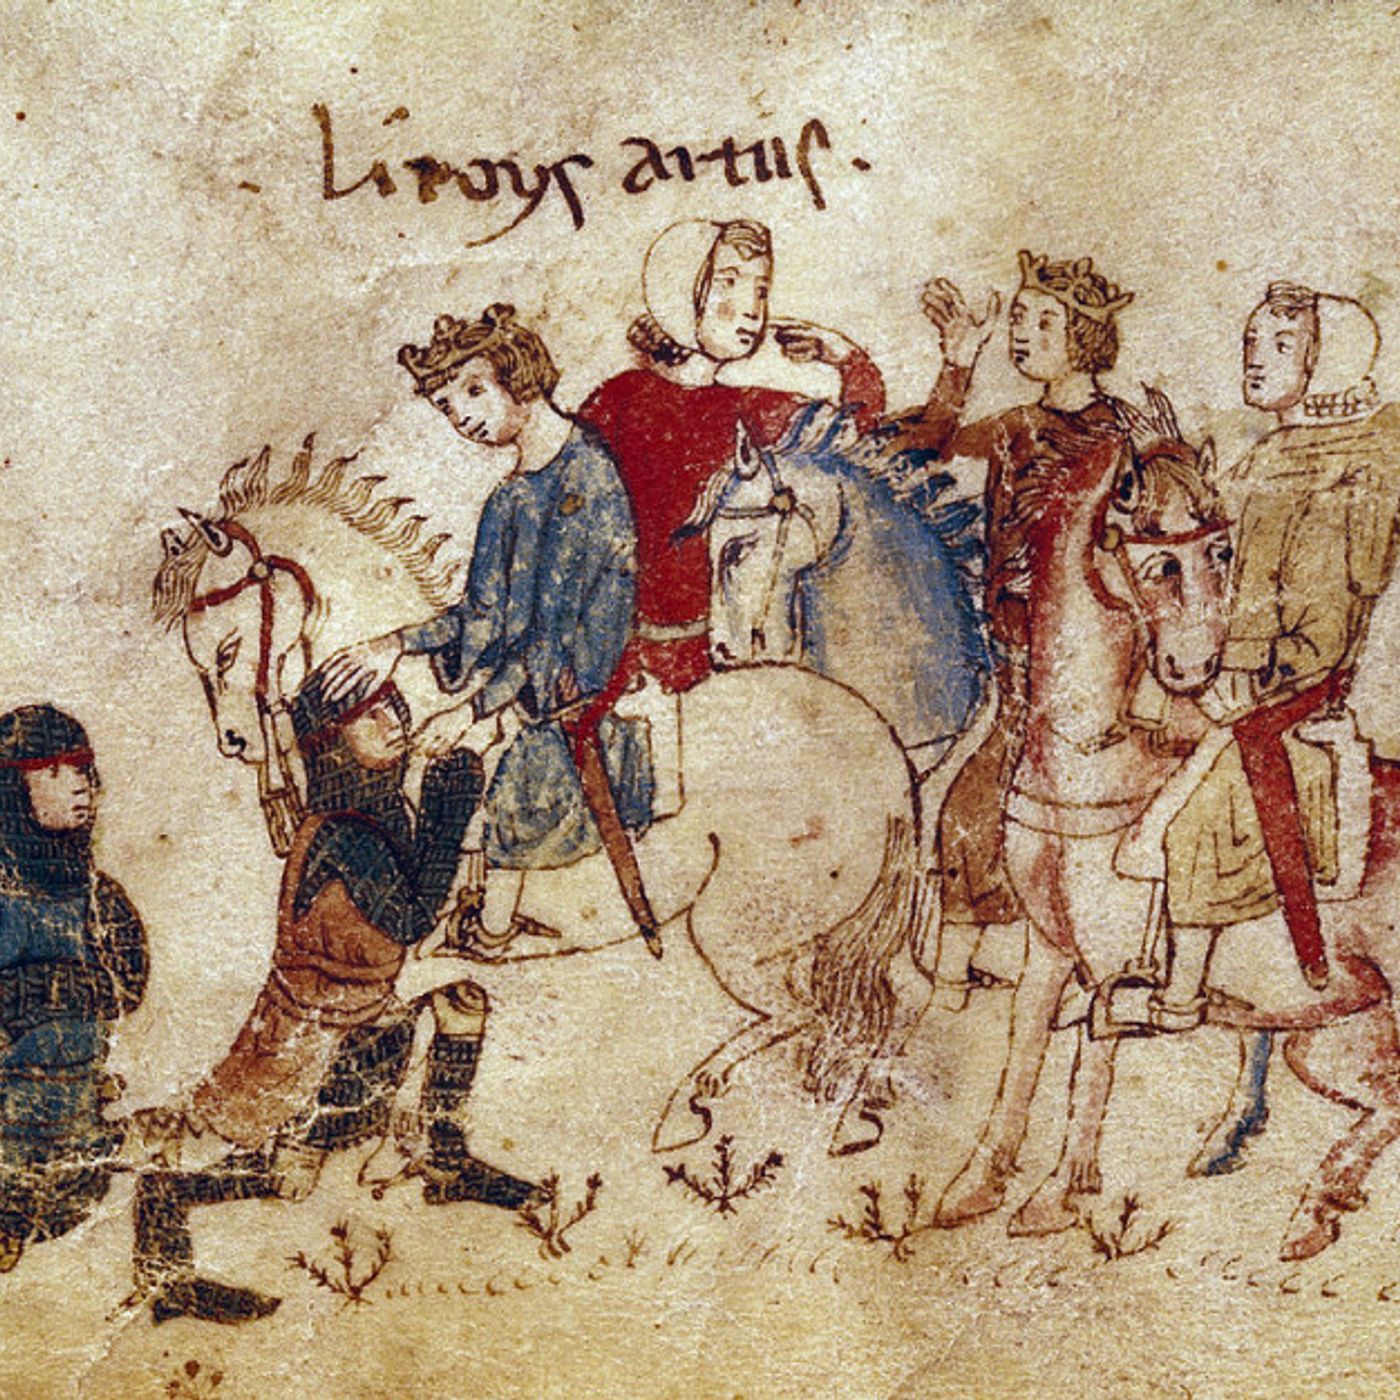 · li roys artus ·